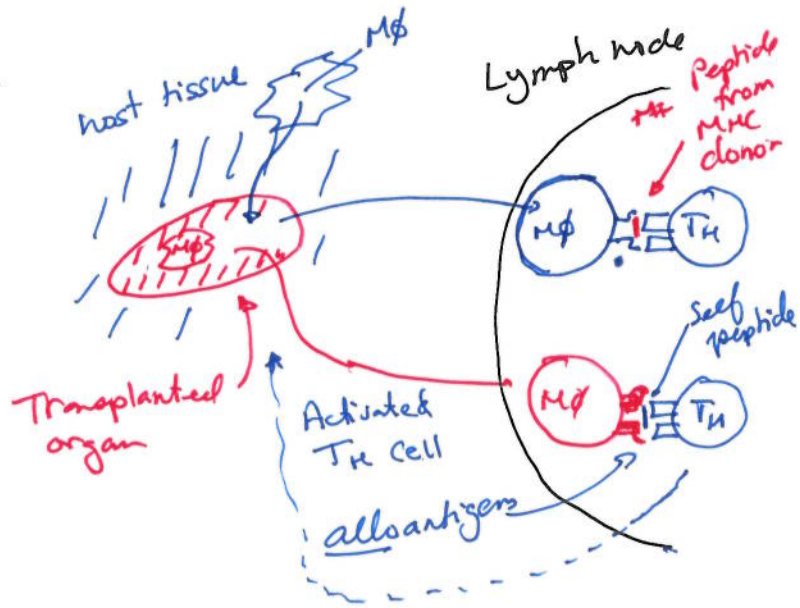 MØ
host tissue
Lymph node
Peptide
from
MHC
donor
MØ
MØ
TH
Self
peptide
MØ
TH
Transplanted
organ
Activated
TH cell
alloantigens